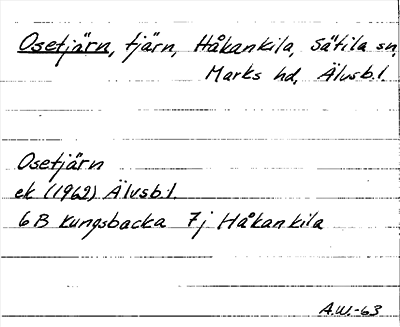 Osetjärn, tjärn, Håkankila, Sätila sn,
Marks hd, Älvsb.l.
Osetjärn
ek (1962) Älvsb.l.
6B Kungsbacka 7j Håkankila
A.W.-63